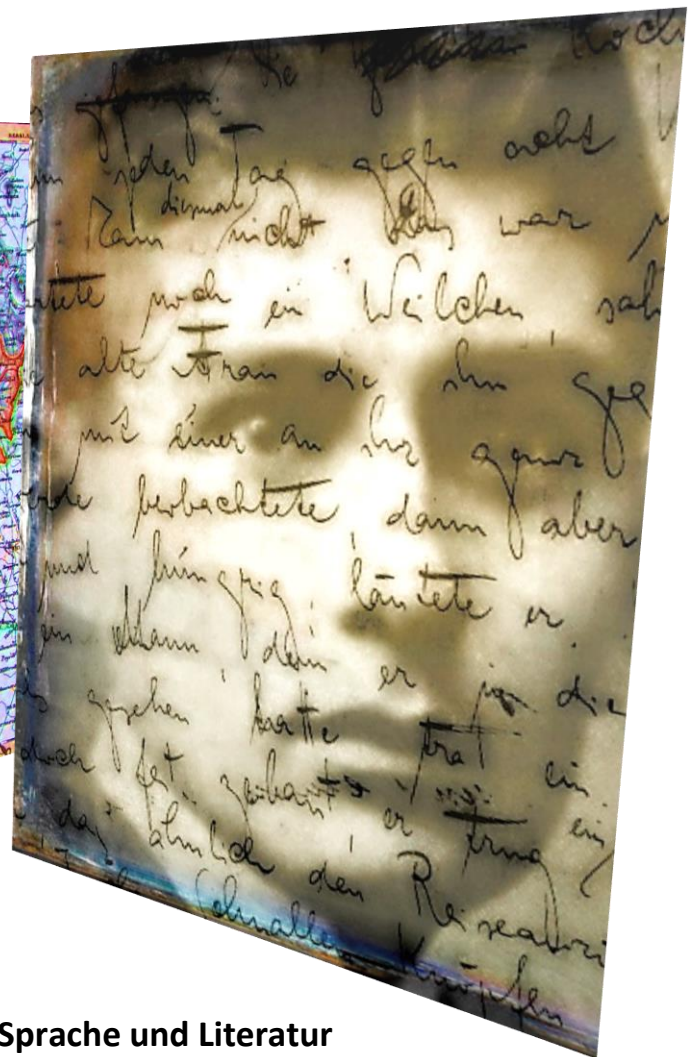 die Köch
jeden Tag gegen acht
diesmal
kam nicht Das war
wartete noch ein Weilchen, sah
alte Frau die ihm geg
mit einer an ihr
beobachtete, dann aber
und hungrig, läutete er.
ein Mann, den er die
gesehen hatte trat ein.
doch fest gebaut, er trug ein
das ähnlich den Reiseanzü
Schnallen Knöpfen
Sprache und Literatur